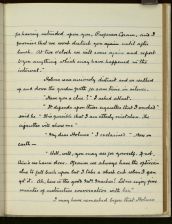 for having intruded upon you, Professor Coram, and I
promise that we won't disturb you again until after
lunch. At two o'clock we will come again and report
to you anything which may have happened in the
interval."
Holmes was curiously distrait and we walked
up and down the garden path for some time in silence.
"Have you a clue?" I asked at last.
"It depends upon those cigarettes that I smoked"
said he "It is possible that I am utterly mistaken. The
cigarettes will show me"
"My dear Holmes" I exclaimed "how on
earth —
"Well, well, you may see for yourself. If not,
there's no harm done. Of course we always have the optician
clue to fall back upon but I take a short cut when I can
get it. Ah, here is the good Mrs Marker! Let us enjoy five
minutes of instructive conversation with her"
I may have remarked before that Holmes